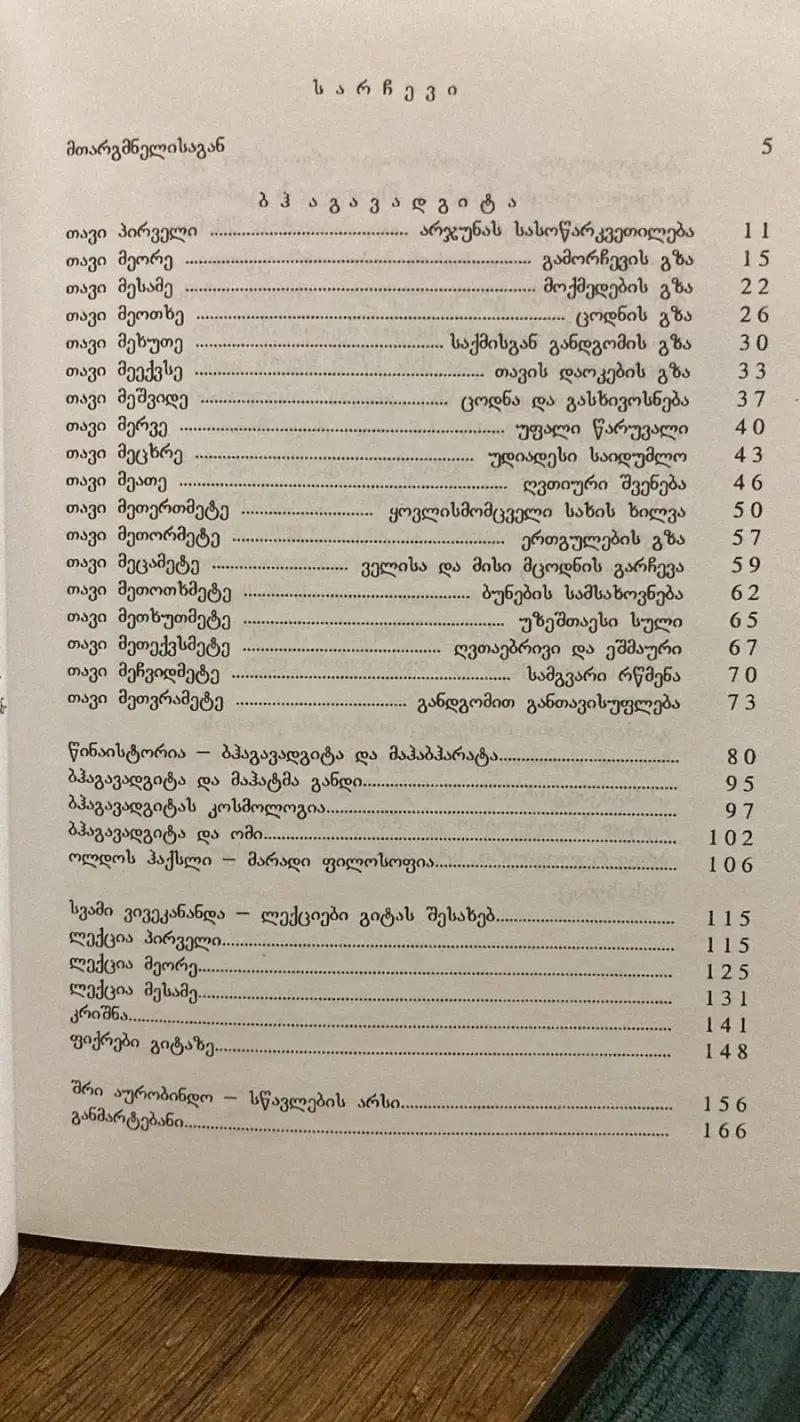 სარჩევი
მთარგმნელისაგან 5
ბჰაგავადგიტა
თავი პირველი ........ არჯუნას სასოწარკვეთილება 11
თავი მეორე ........ გამორჩევის გზა 15
თავი მესამე ........ მოქმედების გზა 22
თავი მეოთხე ........ ცოდნის გზა 26
თავი მეხუთე ........ საქმისგან განდგომის გზა 30
თავი მეექვსე ........ თავის დაოკების გზა 33
თავი მეშვიდე ........ ცოდნა და გასხივოსნება 37
თავი მერვე ........ უფალი წარუვალი 40
თავი მეცხრე ........ უდიადესი საიდუმლო 43
თავი მეათე ........ ღვთიური შვენება 46
თავი მეთერთმეტე ........ ყოვლისმომცველი სახის ხილვა 50
თავი მეთორმეტე ........ ერთგულების გზა 57
თავი მეცამეტე ........ ველისა და მისი მცოდნის გარჩევა 59
თავი მეთოთხმეტე ........ ბუნების სამსახოვნება 62
თავი მეთხუთმეტე ........ უზეშთაესი სული 65
თავი მეთექვსმეტე ........ ღვთაებრივი და ეშმაური 67
თავი მეჩვიდმეტე ........ სამგვარი რწმენა 70
თავი მეთვრამეტე ........ განდგომით განთავისუფლება 73
წინაისტორია – ბჰაგავადგიტა და მაჰაბჰარატა........ 80
ბჰაგავადგიტა და მაჰატმა განდი........ 95
ბჰაგავადგიტას კოსმოლოგია........ 97
ბჰაგავადგიტა და ომი........ 102
ოლდოს ჰაქსლი – მარადი ფილოსოფია........ 106
სვამი ვივეკანანდა – ლექციები გიტას შესახებ........ 115
ლექცია პირველი........ 115
ლექცია მეორე........ 125
ლექცია მესამე........ 131
კრიშნა........ 141
ფიქრები გიტაზე........ 148
შრი აურობინდო – სწავლების არსი........ 156
განმარტებანი........ 166